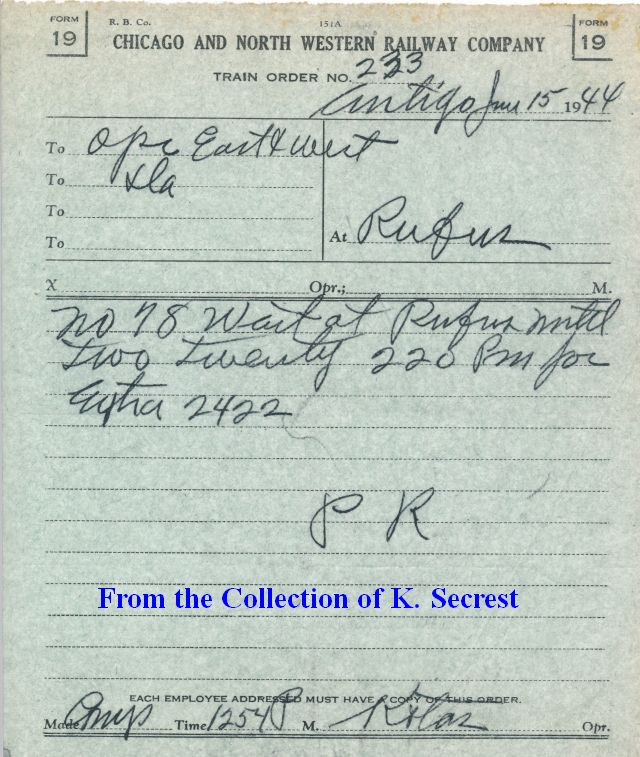 FORM 19 R. B. Co. 151A FORM 19
CHICAGO AND NORTH WESTERN RAILWAY COMPANY
TRAIN ORDER NO. 233
Antigo June 15 1944
To Opr East & West
To
To
To
At Rufus
X Opr.; M.
No 78 Wait at Rufus until
Two Twenty 220 Pm for
Extra 2422
P R
From the Collection of K. Secrest
EACH EMPLOYEE ADDRESSED MUST HAVE A COPY OF THIS ORDER.
Made Time 1254 P M. Opr.